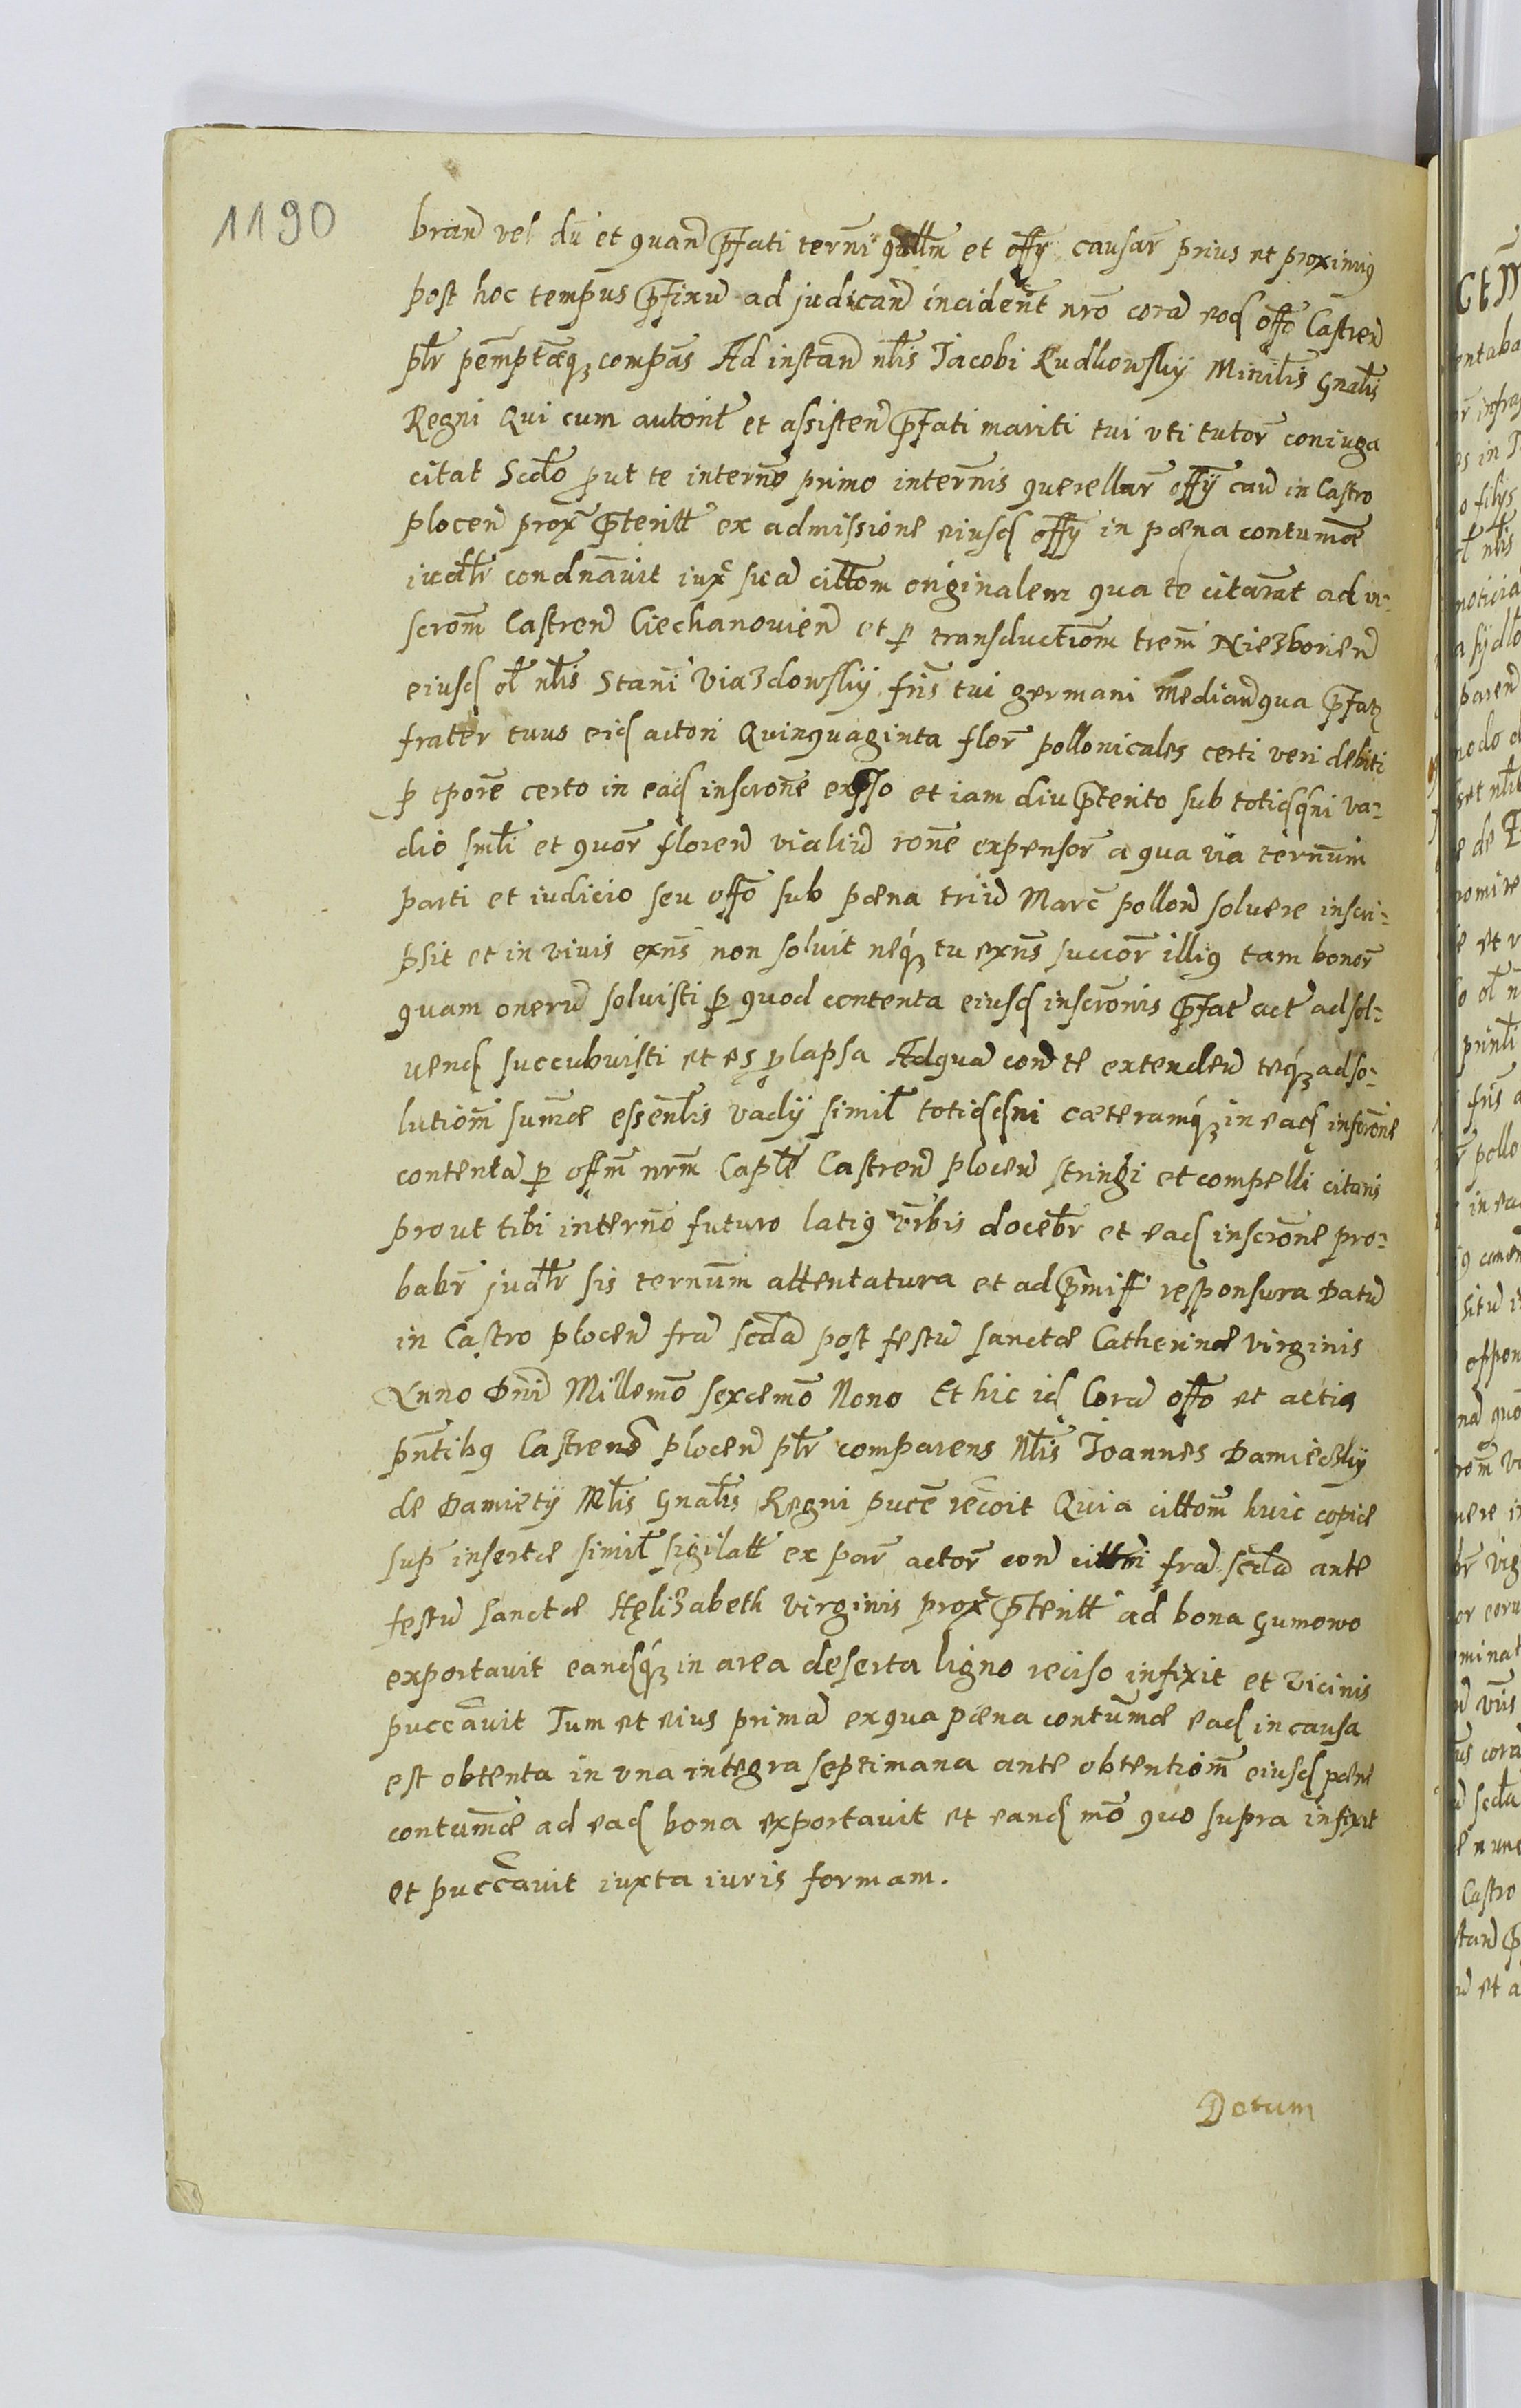 1190
brand vel dū et quand p̄fati terni q̄llm et offy causar prius et proximiq
post hoc tempus p̄fixū ad judicand incident nro corā eod offo Castren
plr pemptāeq3 compās Ad instand nlis Jacobi Rudkowsky Ministlis Gnalis
Regni Qui cum autorit et assisten p̄fati mariti tui uti tutor coniuga
citat Scdo put te interno primo internis querellar offy cau in Castro
plocen prox p̄teritt ex admissione eiusd offy in pæna contumæ
iudlr condnavit iux suā cittom originalem qua te citarat ad in-
scrom Castren Ciechanovien et p transductiom trem Niezborien
eiusd ol nlis Stani Viazdowsky fris tui germani median qua p̄fatq
frater tuus eid actori Quinquaginta flor pollonicales certi veri debiti
p tpore certo in ead inscrone exp̄sso et iam diu p̄terito sub totidq̄ni va-
dio smli et quor floren vialiū rone expensor a qua via ternum
parti et iudicio seu offo sub pæna triū Marc pollon solvere inscri-
psit et in vivis exns non solvit neq3 tu exns succor illiq tam bonor
quam onerū solvisti p quod contenta eiusd inscronis p̄fat act ad sol-
uend succubuisti et es plapsa Ad quā con te extenden teq3 ad so-
lutiom sumæ essenlis vady simil totidq̄ni cæteramq3 in ead inscrone
contentā p offm nrm Caple Castren plocen stringi et compelli citaris
prout tibi interno futuro latiq vrbis docebr et ead inscrone pro-
babr judlr sis ternum attentatura et ad p̄miss responsura Datū
in Castro plocen fra scda post festū sanctæ Catherinæ virginis
Anno Dni Millemo sexcemo Nono Et hic id Corā offo et actis
pntibq Castren plocen plr comparens Nlis Joannes Damiecky
de Damiety Mlis Gnalis Regni pute recoit Quia cittom huic copiæ
sup insertæ simil sigilatt ex par actor con cittni fra scda ante
festū sanctæ Hęlizabeth virginis prox p̄teritt ad bona Gumowo
exportavit eandq3 in area deserta ligno reciso infixit et vicinis
puccavit Tum et eius primā ex qua pæna contumæ ead in causa
est obtenta in vna integra septimana ante obtentiom eiusd pæne
contumæ ad ead bona exportavit et eand mo quo supra infixit
et puccavit iuxta iuris formam.
Datum